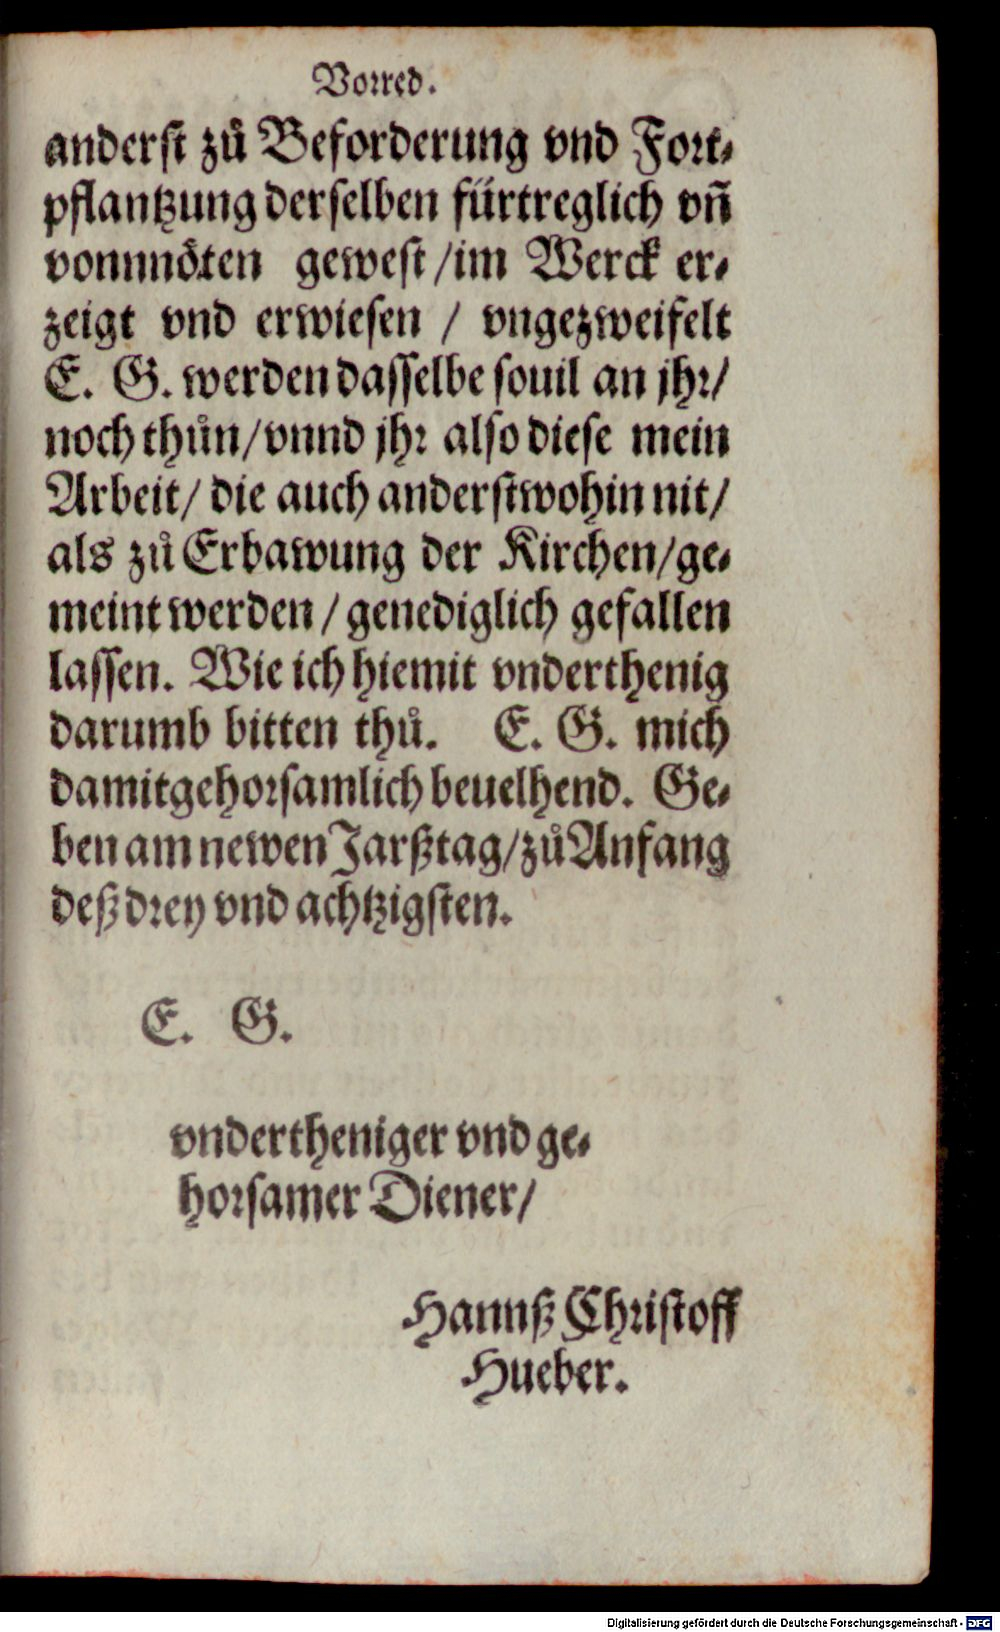 Vorred.
anderst zů Beforderung vnd Fort-
pflantzung derselben fürtreglich vñ
vonnnöten gewest / im Werck er-
zeigt vnd erwiesen / vngezweifelt
E. G. werden dasselbe souil an jhr /
noch thůn / vnnd jhr also diese mein
Arbeit / die auch anderstwohin nit /
als zů Erbawung der Kirchen / ge-
meint werden / genediglich gefallen
lassen. Wie ich hiemit vnderthenig
darumb bitten thů. E. G. mich
damit gehorsamlich beuelhend. Ge-
ben am newen Jarßtag / zů Anfang
deß drey vnd achtzigsten.
E. G.
vndertheniger vnd ge-
horsamer Diener /
Hannß Christoff
Hueber.
Digitalisierung gefördert durch die Deutsche Forschungsgemeinschaft - DFG